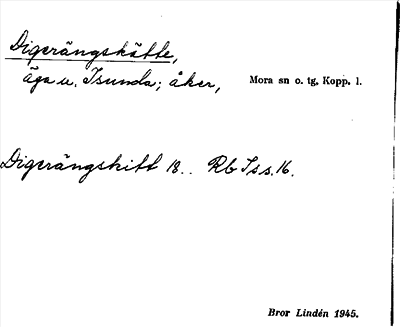 Digerängskätte,
äga u. Isunda; åker, Mora sn o. tg, Kopp. l.
Digerängskitt 18.. Rb Iss. 16.
Bror Lindén 1945.